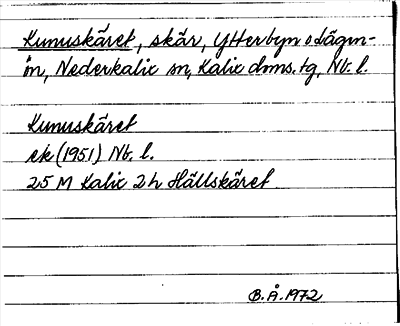 Kunuskäret, skär, Ytterbyn o Lågön-
ön, Nederkalix sn, Kalix doms. tg, Nb. l.
Kunuskäret
ek (1951) Nb. l.
25 M Kalix 2h Hällskäret
B. Å. 1972